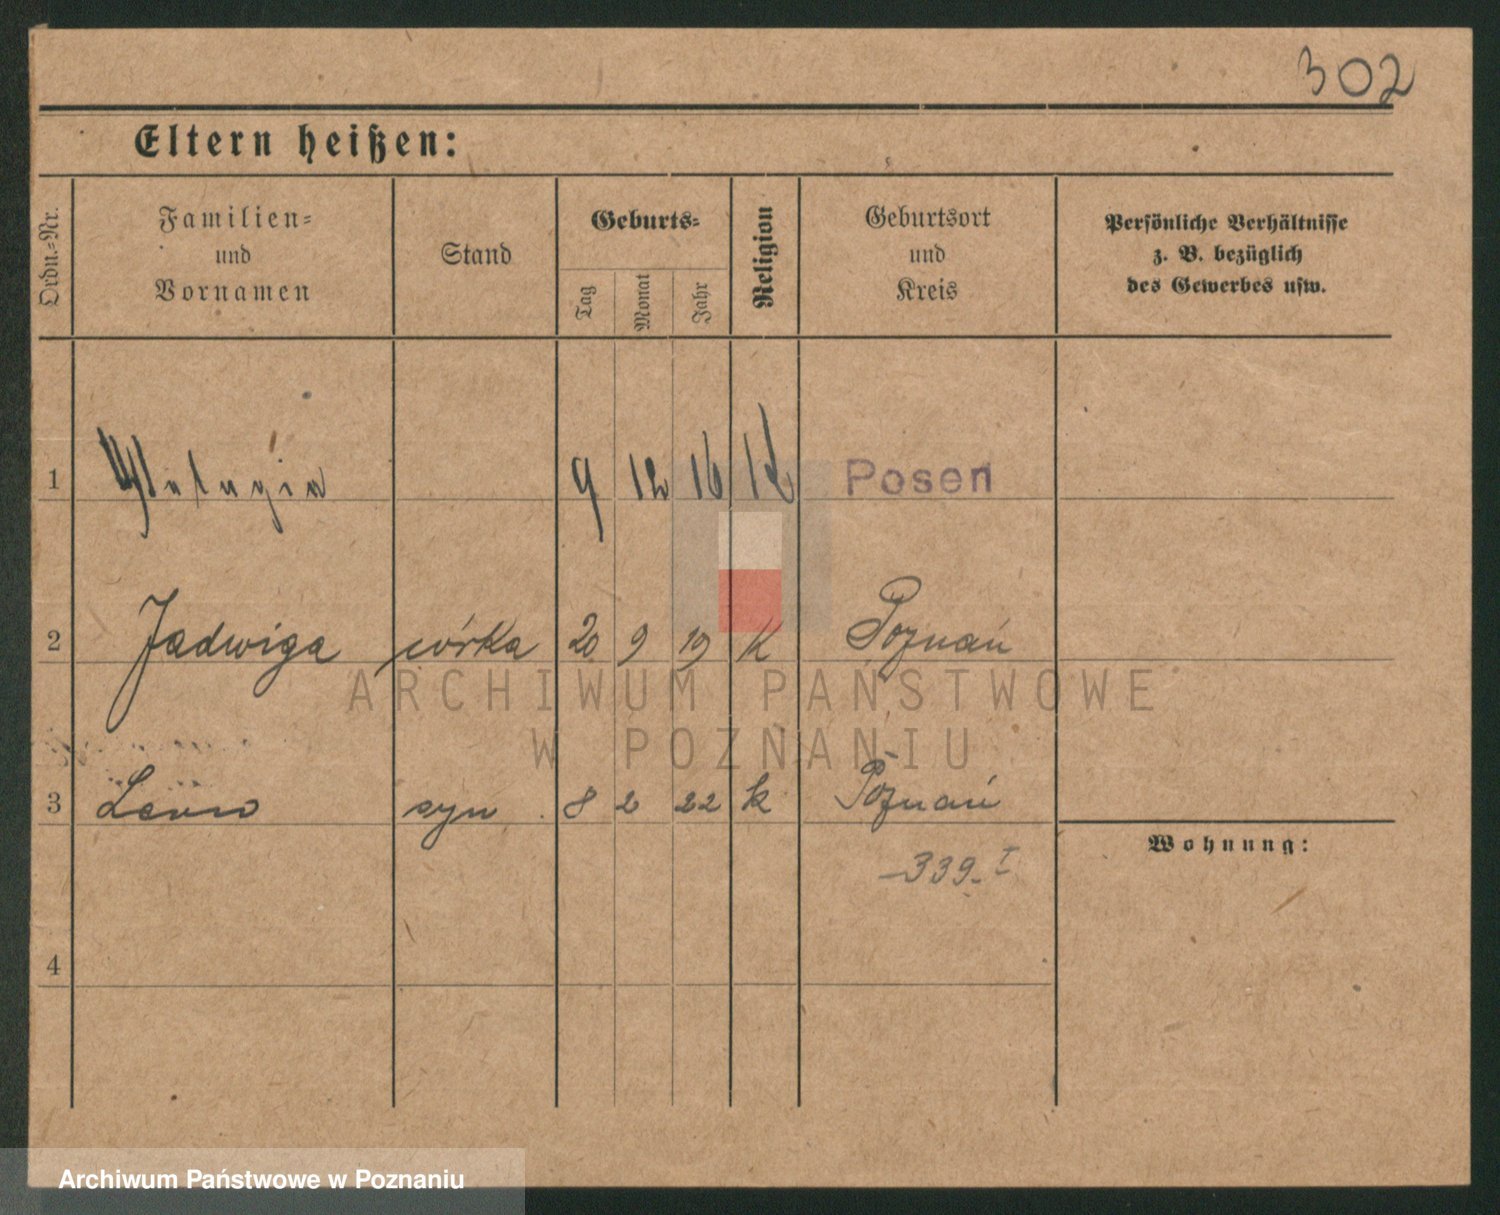 302
Eltern heißen:
Ordn.=Nr.
Familien=
und
Vornamen
Stand
Geburts=
Tag
Monat
Jahr
Religion
Geburtsort
und
Kreis
Persönliche Verhältnisse
z. B. bezüglich
des Gewerbes usw.
1 9 12 16 k Posen
2 Jadwiga córka 20 9 19 K Poznań
3 Leon syn 8 2 22 k Poznań
Wohnung:
339. I
4
ARCHIWUM PAŃSTWOWE
W POZNANIU
Archiwum Państwowe w Poznaniu